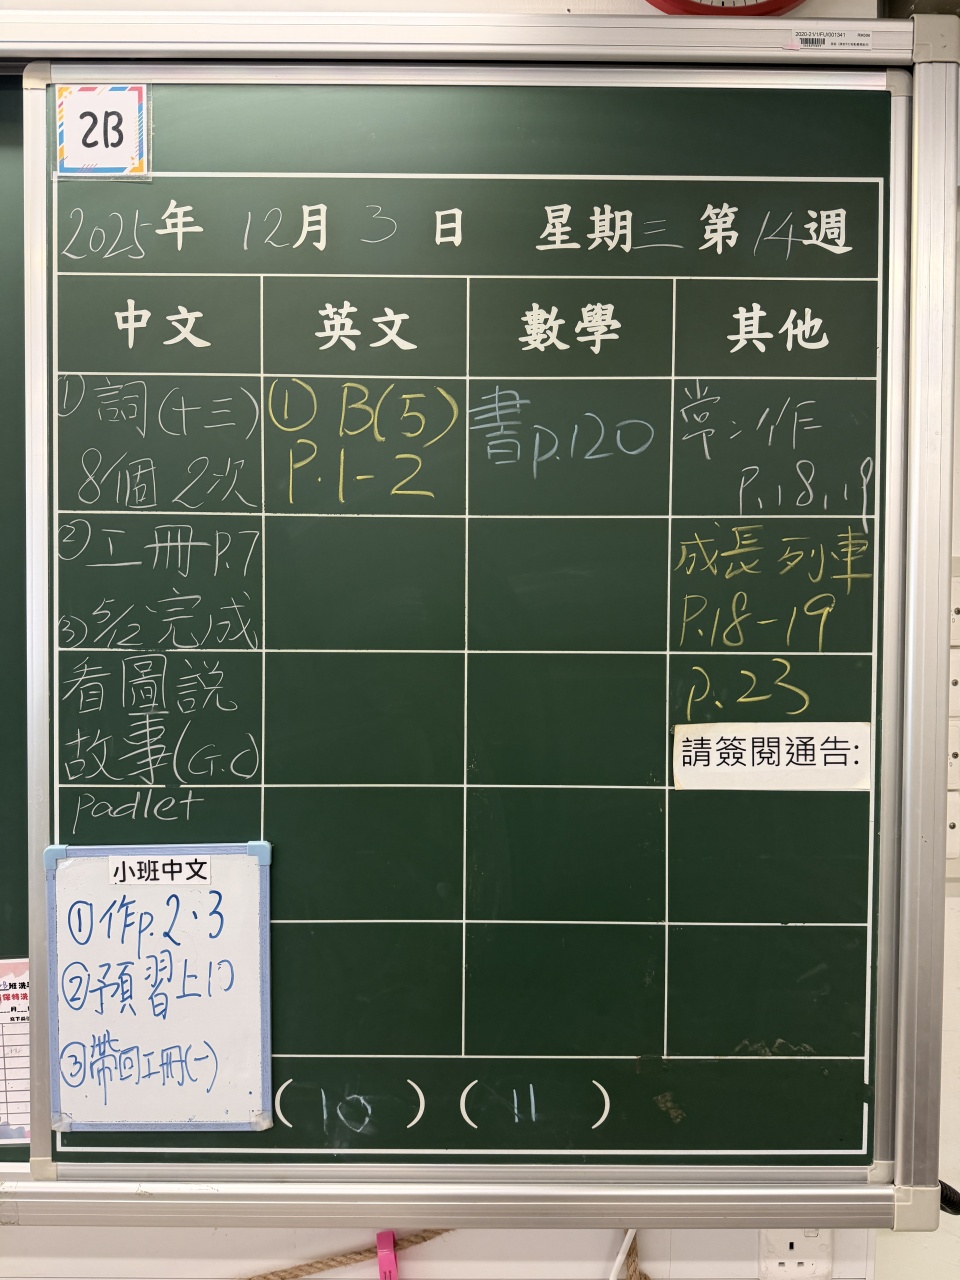 2020-21/1/FU/001341
2B
2025年 12月 3 日 星期三 第 14 週
中文 英文 數學 其他
① 詞(十三)
8個 2次
② 工冊 P.7
③ 5/12 完成
看圖說
故事(G.C)
padlet
① B(5)
P.1-2
書p.120
常:作
P.18,19
成長列車
P.18-19
P.23
請簽閱通告:
小班中文
①作p.2、3
②預習上10
③帶回工冊(一)
( 10 ) ( 11 )